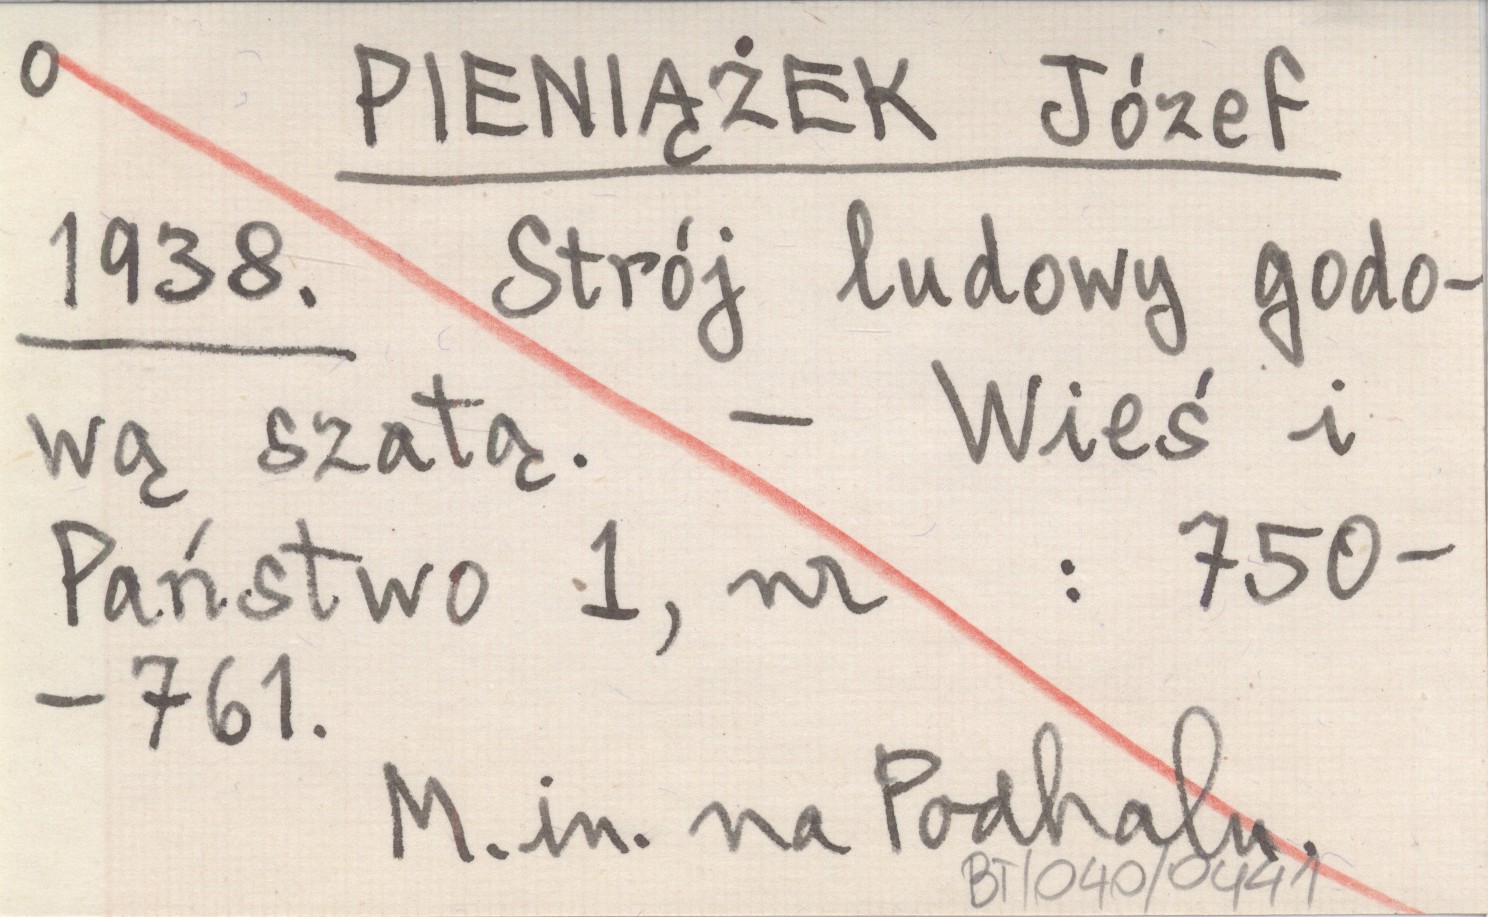 O PIENIĄŻEK Józef
1938. Strój ludowy godo-
wą szatą. - Wieś i
Państwo 1, nr : 750-
-761.
M. in. na Podhalu.
BT/040/0441